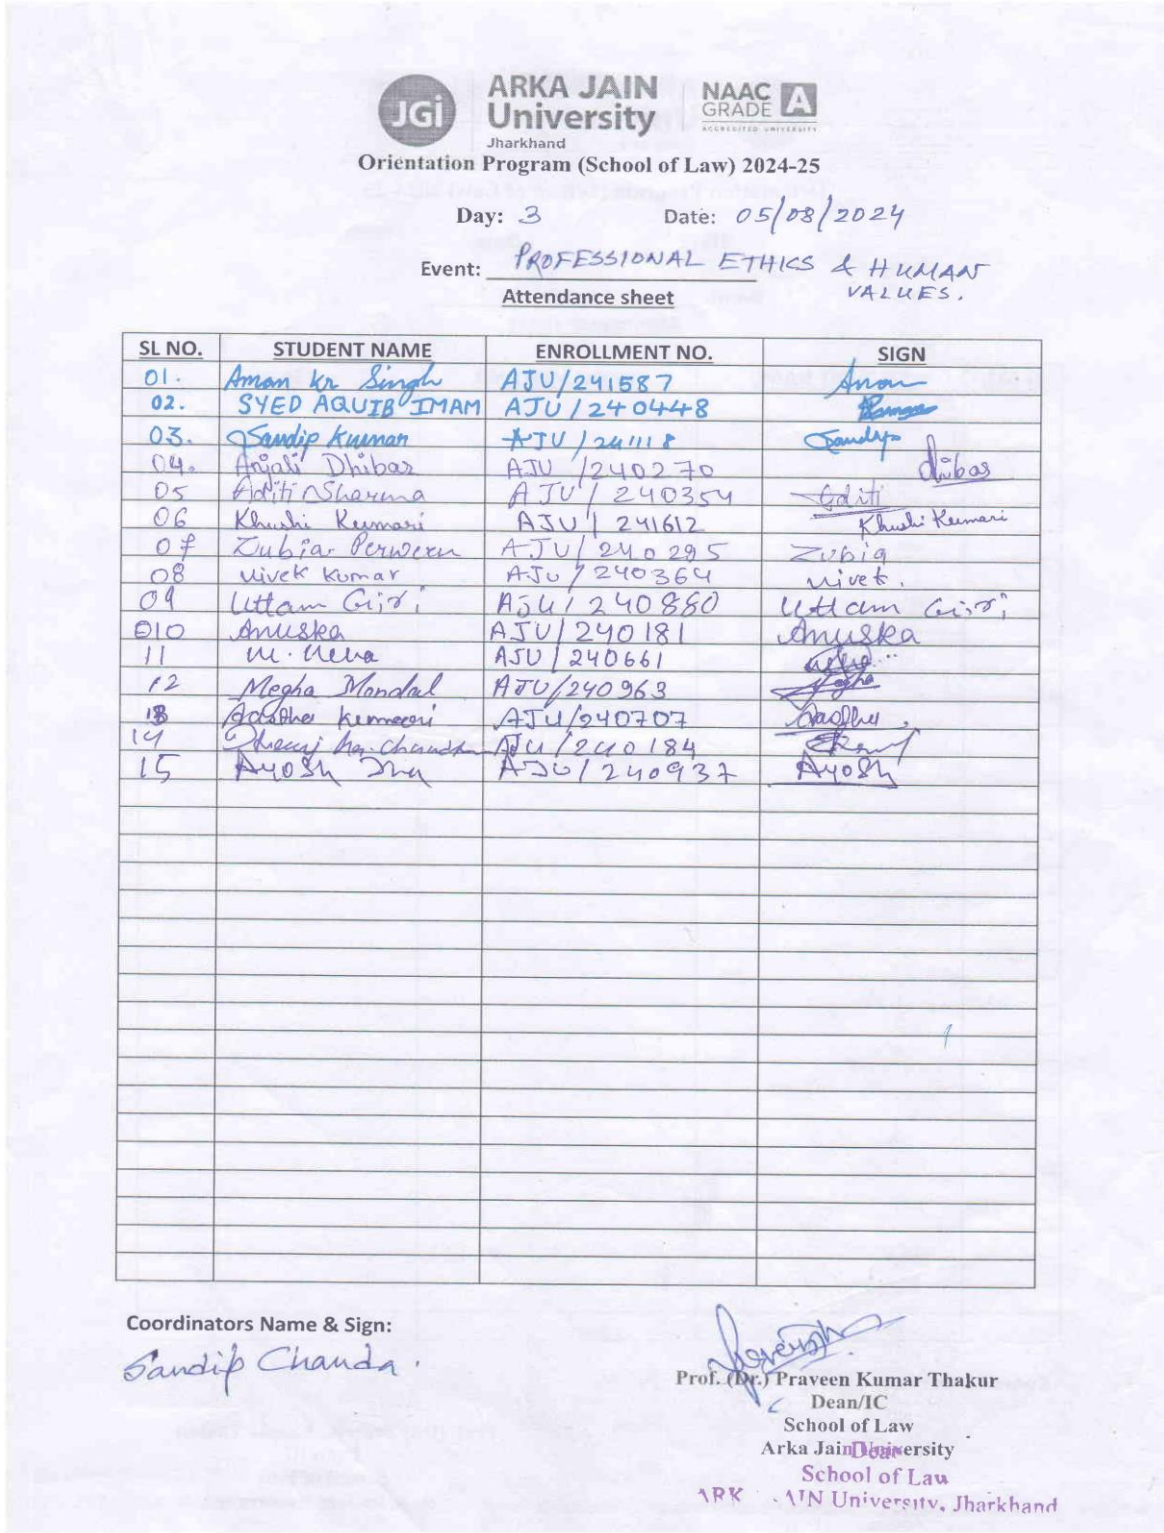 JGi ARKA JAIN University Jharkhand NAAC GRADE A ACCREDITED UNIVERSITY
Orientation Program (School of Law) 2024-25
Day: 3 Date: 05/08/2024
Event: PROFESSIONAL ETHICS & HUMAN VALUES.
Attendance sheet
SL NO. STUDENT NAME ENROLLMENT NO. SIGN
01. Aman Kr Singh AJU/241587 Aman
02. SYED AQUIB IMAM AJU/240448
03. Sandip Kumar AJU/241118 Sandip
04. Anjali Dhibar AJU/240270 dhibar
05 Aditi Sharma AJU/240354 Aditi
06 Khushi Kumari AJU/241612 Khushi Kumari
07 Zubia Perween AJU/240295 Zubia
08 Vivek Kumar AJU/240364 Vivek.
09 Uttam Giri AJU/240880 Uttam Giri
010 Anuska AJU/240181 Anuska
11 M. AJU/240661
12 Megha Mondal AJU/240963 Megha
13 Kumari AJU/240707
14 AJU/240184
15 Ayosh Jha AJU/240937 Ayosh
Coordinators Name & Sign:
Sandip Chanda.
Prof. (Dr.) Praveen Kumar Thakur
Dean/IC
School of Law
Arka Jain University
Dean
School of Law
ARK JAIN University, Jharkhand